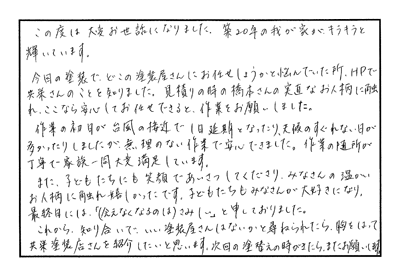 この度は大変お世話になりました。築20年の我が家が、キラキラと
輝いています。
今回の塗装で、どこの塗装屋さんにお任せしようかと悩んでいた所、HPで
共栄さんのことを知りました。見積りの時の橋本さんの実直なお人柄に触
れ、ここなら安心してお任せできると、作業をお願いしました。
作業の初日が台風の接近で1日延期となったり、天候のすぐれない日が
多かったりしましたが、無理のない作業で安心できました。作業の随所が
丁寧で家族一同大変満足しています。
また、子どもたちにも笑顔であいさつしてくださり、みなさんの温かい
お人柄に触れ嬉しかったです。子どもたちもみなさんが大好きになり、
最終日には、「(会えなくなるのは)さみしい。」と申しておりました。
これから、知り合いで、いい塗装屋さんはないかと尋ねられたら、胸をはって
共栄塗装店さんを紹介したいと思います。次回の塗替えの時がきたら、またお願いします